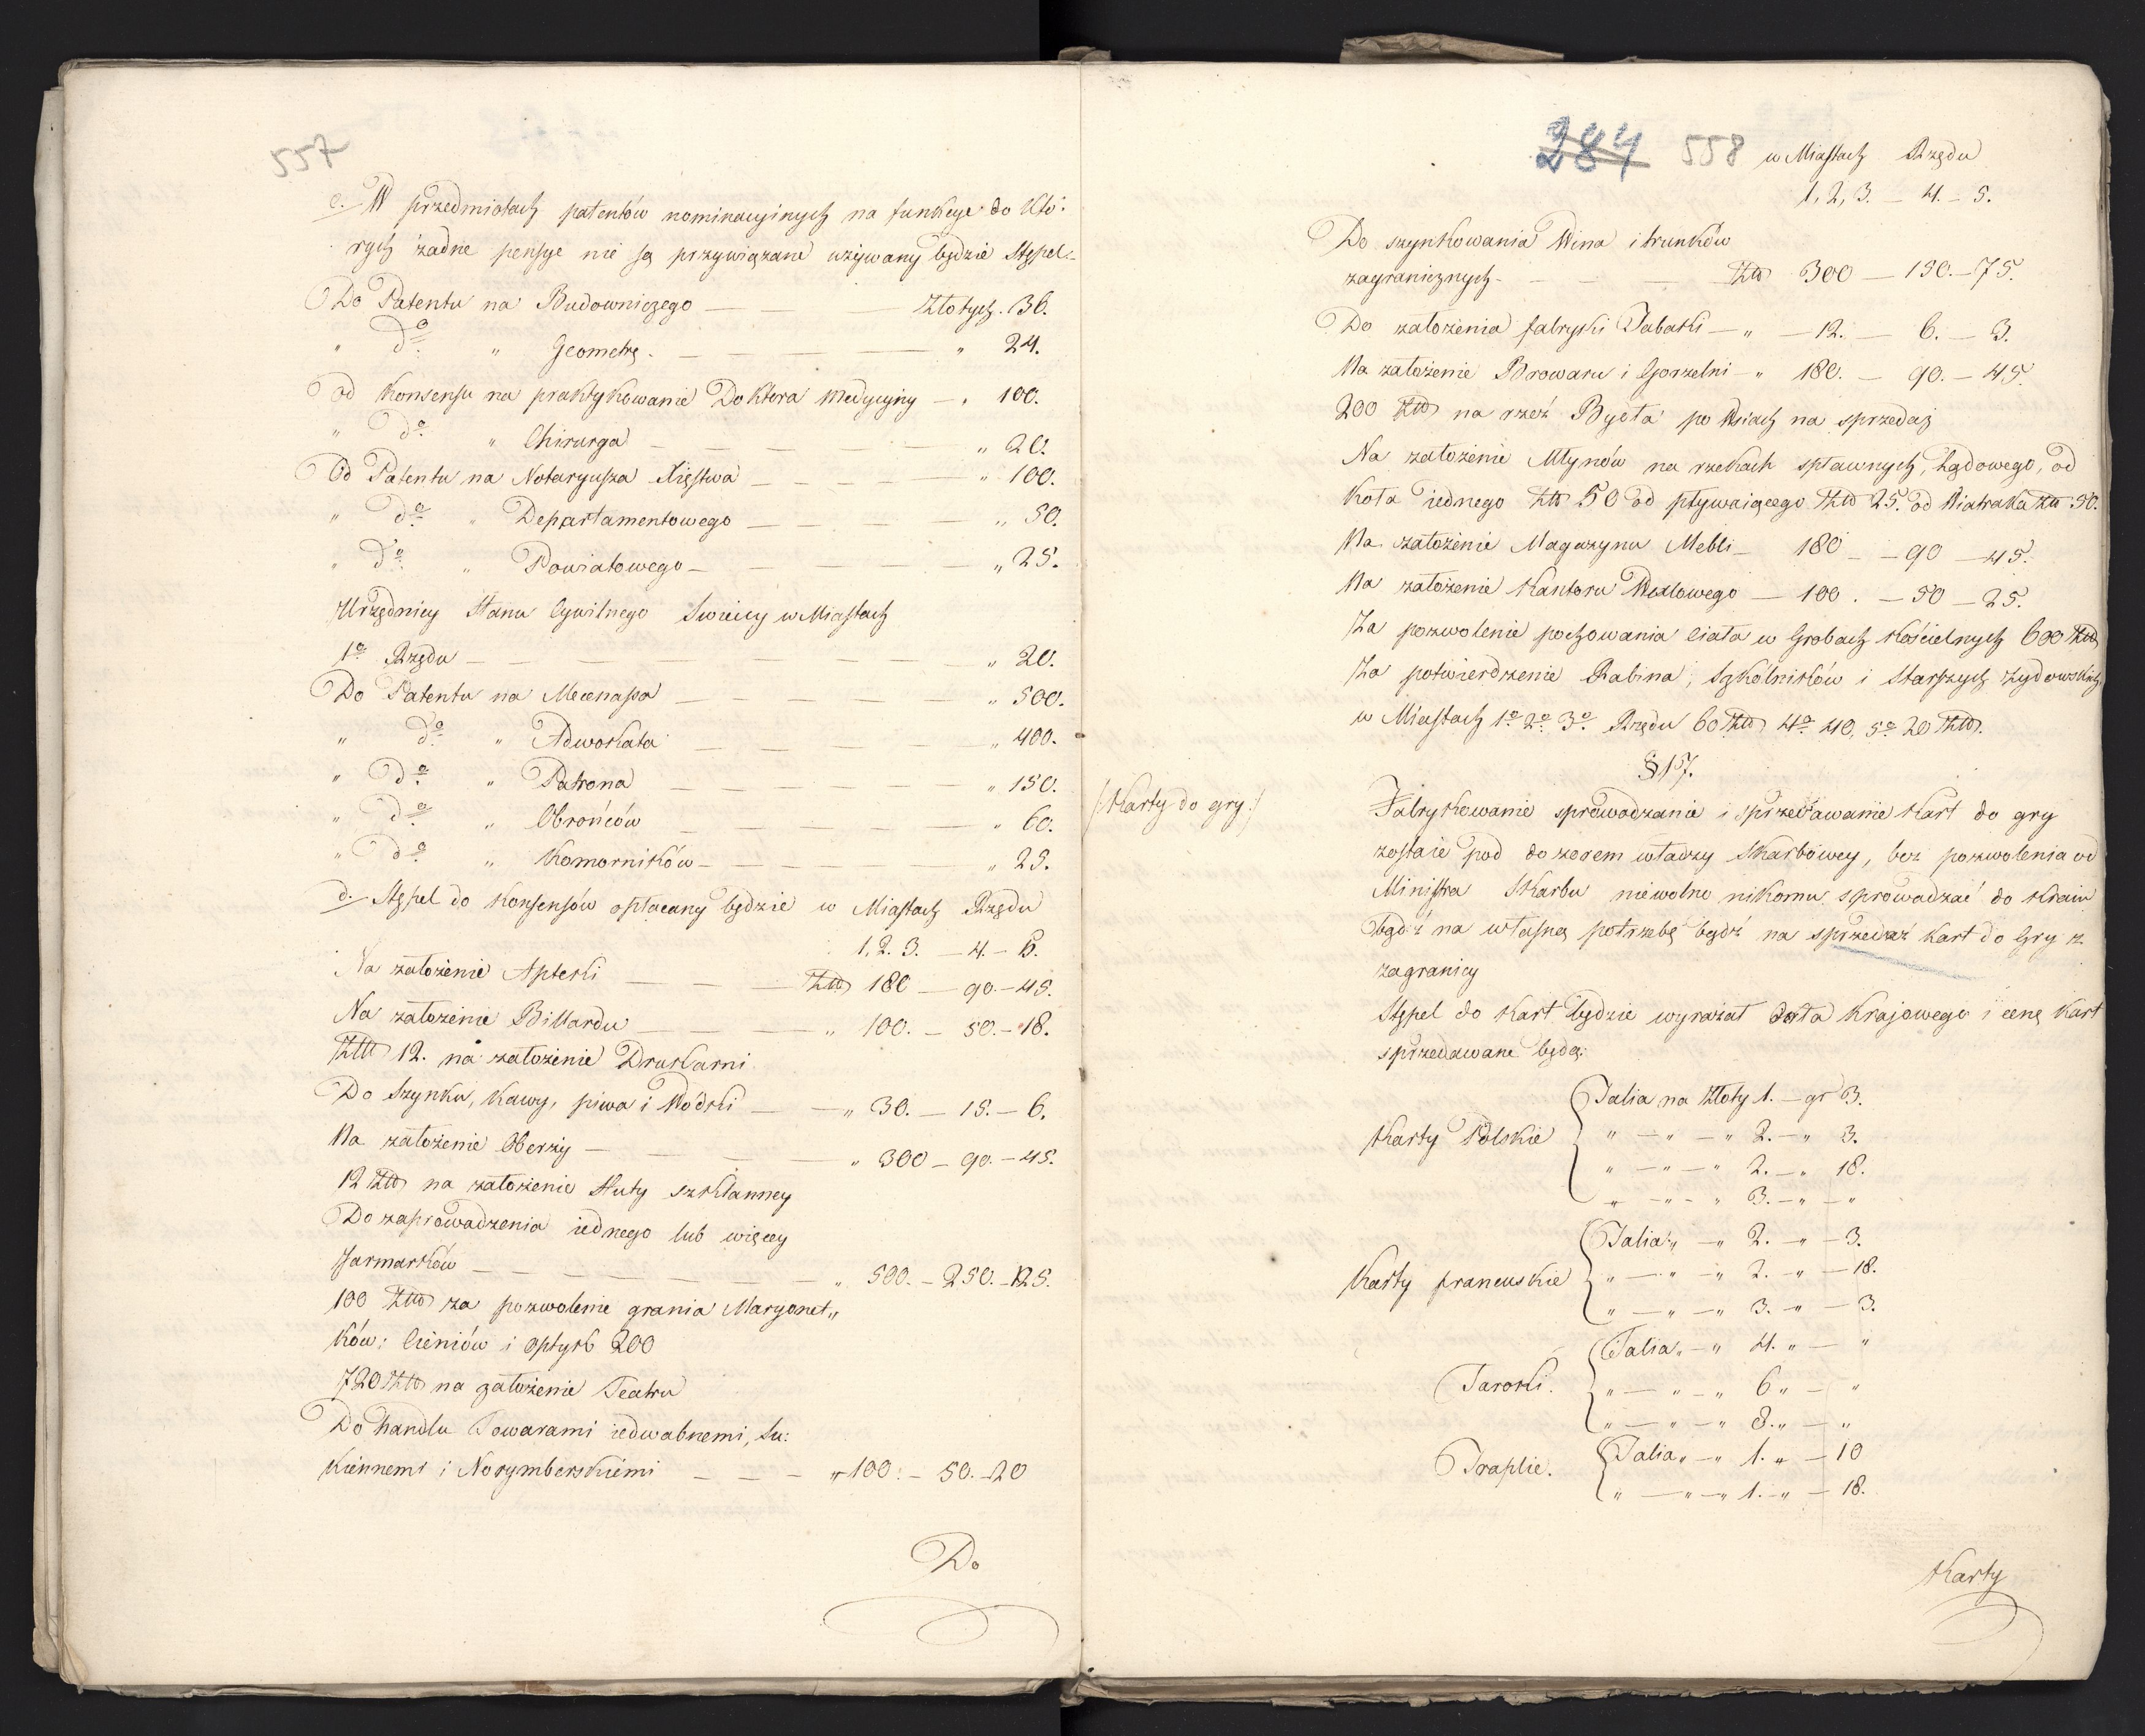 557
c. W przedmiotach patentów nominacyinych na funkcye do któ:
rych żadne pensye nie są przywiązane używany będzie Stępel:
Do Patentu na Budowniczego — — Złotych. 36.
" do " Geometrę. — — — — " 24.
od Konsensu na praktykowanie Doktora Medycyny — " 100.
" do " Chirurga — — — — " 20.
Od Patentu na Notaryusza Xięstwa — — — — " 100.
" do " Departamentowego — — — — " 50.
" do " Powiatowego — — — — " 25.
Urzędnicy Stanu Cywilnego Swieccy w Miastach
1o Rzędu — — — — " 20.
Do Patentu na Mecenasa — — — — " 500.
" do " Adwokata — — — — " 400.
" do " Patrona — — — — " 150.
" do " Obrońców — — — — " 60.
" do " Komorników — — — — " 25.
d. Stępel do Konsensów opłacany będzie w Miastach Rzędu
1. 2. 3. — 4. — 5.
Na założenie Apteki — — — Złtt 180 — 90. — 45.
Na założenie Billardu — — " 100. — 50. — 18.
Złtt 12. na założenie Drukarni
Do Szynku, kawy, piwa i Wódki — — " 30. — 15. — 6.
Na założenie Oberży — — — " 300 — 90. — 45.
12 Złtt na założenie Huty szklanney
Do zaprowadzenia iednego lub więcey
Jarmarków — — — — — " 500. — 250. — 125.
100 Złtt za pozwolenie grania Maryonet„
ków: Cieniów i optyk 200
720 Złtt na założenie Teatru
Do handlu Towarami iedwabnemi, Su:
kiennemi i Norymberskiemi — — — " 100. — 50. — 20
Do
284 558 w Miastach Rzędu
1, 2, 3. — 4. — 5.
Do szynkowania Wina i trunków
zagranicznych — — — Złtt 300 — 150. — 75.
Do założenia fabryki Tabaki — " — 12. — 6. — 3.
Na założenie Browaru i Gorzelni — " 180. — 90. — 45.
200 Złtt na rzeź Bydła po Wsiach na sprzedaj
Na założenie Młynów na rzekach spławnych, Lądowego, od
Koła iednego Złtt 50 od pływaiącego Złtt 25. od Wiatraka Złtt 50.
Na założenie Magazynu Mebli — 180 — 90 — 45.
Na założenie Kantoru Wexlowego — 100. — 50 — 25.
Za pozwolenie pochowania ciała w Grobach Kościelnych 600 Złtt
Za potwierdzenie Rabina, Szkólników i Starszych Żydowskich
w Miastach 1o 2o 3o Rzędu 60 Złtt 4o 40, 5o 20 Złtt.
§ 17.
/:Karty do gry:/
Fabrykowanie sprowadzanie i sprzedawanie Kart do gry
zostaie pod dozorem władzy Skarbowey, bez pozwolenia od
Ministra Skarbu niewolno nikomu sprowadzać do Kraiu
bądź na własną potrzebę bądź na sprzedaż Kart do Gry z
zagranicy
Stępel do Kart będzie wyrażał Orła Krajowego i cenę Kart
sprzedawane będą:
Talia na Złoty 1. — gr 3.
Karty Polskie " — " — " 2. — " 3.
" — " — " 2. — " 18.
" — " — " 3. — " — "
Talia " — " 2. — " — 3.
Karty francuskie " — " — " 2. — " — 18.
" — " — " 3. — " — 3.
Talia " — " 4. " — "
Taroki. " — " — " 6 " — "
" — " — " 8. " — "
Traplie. Talia " — " 1. " — 10
" — " — " 1. — " — 18.
Karty